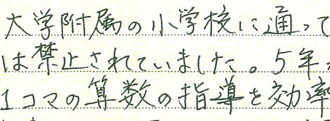 大学附属の小学校に通って
は禁止されていました。5年
1コマの算数の指導を効率